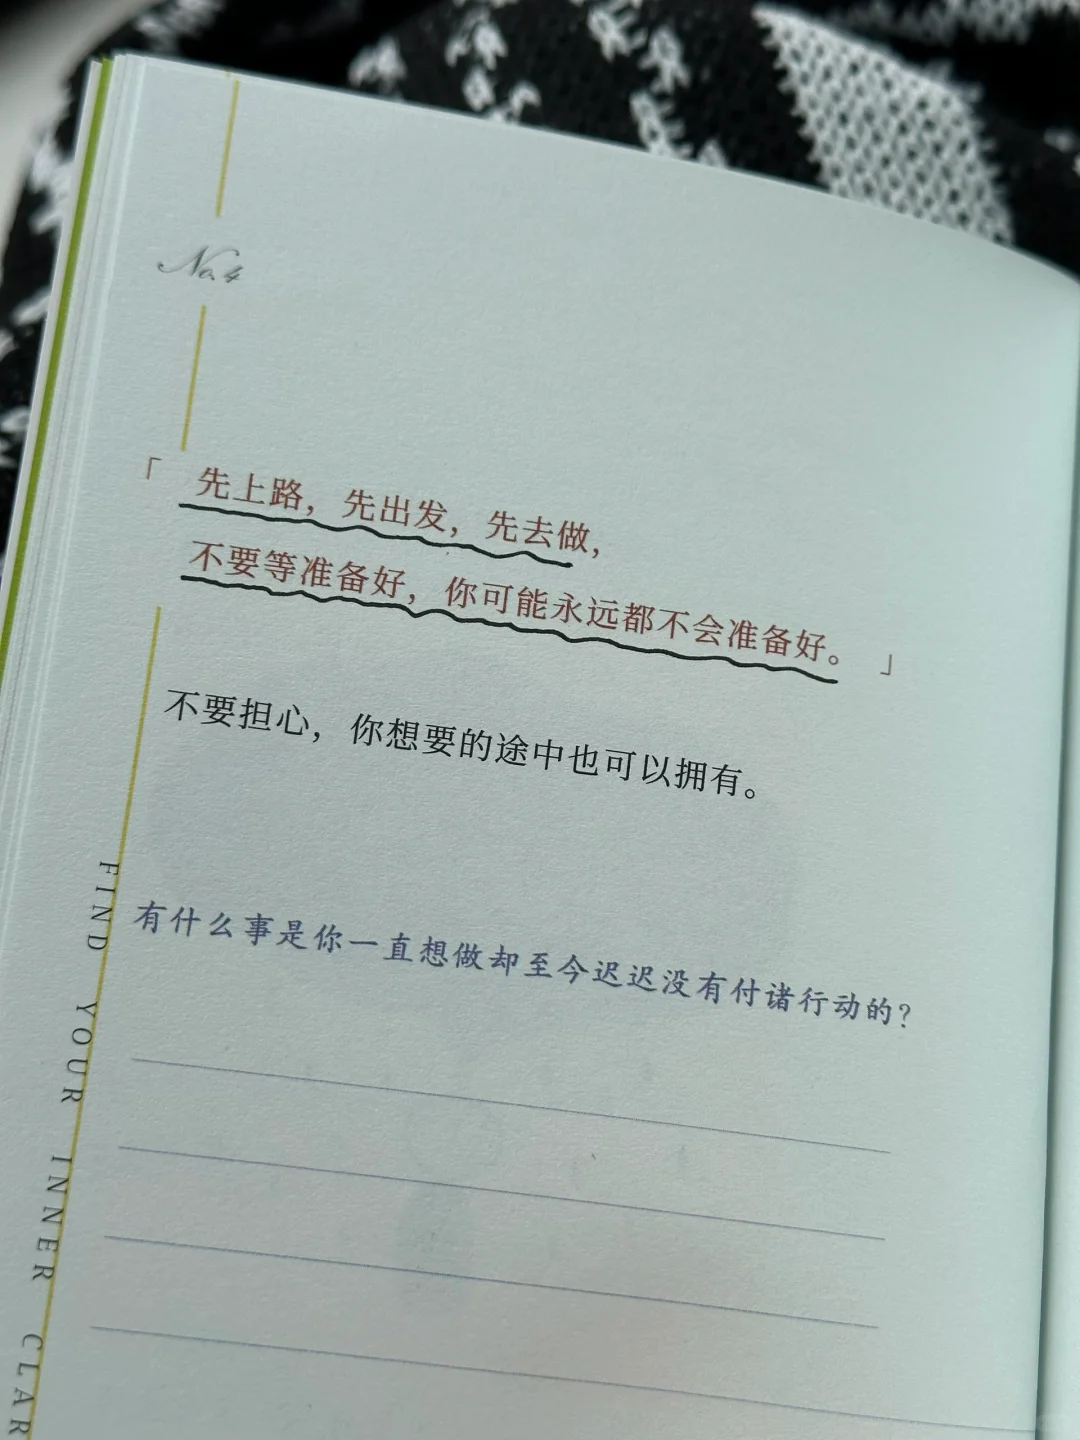 No.4
「先上路，先出发，先去做，
不要等准备好，你可能永远都不会准备好。」
不要担心，你想要的途中也可以拥有。
有什么事是你一直想做却至今迟迟没有付诸行动的？
FIND YOUR INNER CLAR